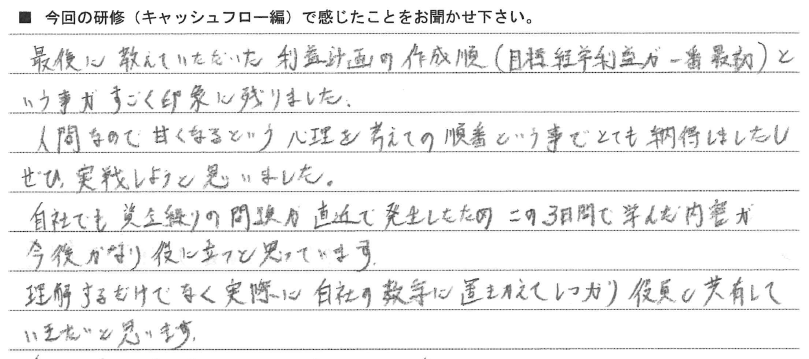 ■ 今回の研修（キャッシュフロー編）で感じたことをお聞かせ下さい。
最後に教えていただいた利益計画の作成順（目標経常利益が一番最初）と
いう事がすごく印象に残りました。
人間なので甘くなるという心理を考えての順番という事でとても納得しましたし
ぜひ実戦しようと思いました。
自社でも資金繰りの問題が直近で発生したため この3日間で学んだ内容が
今後かなり役に立つと思っています。
理解するだけでなく実際に自社の数字に置きかえてしっかり役員と共有して
いきたいと思います。